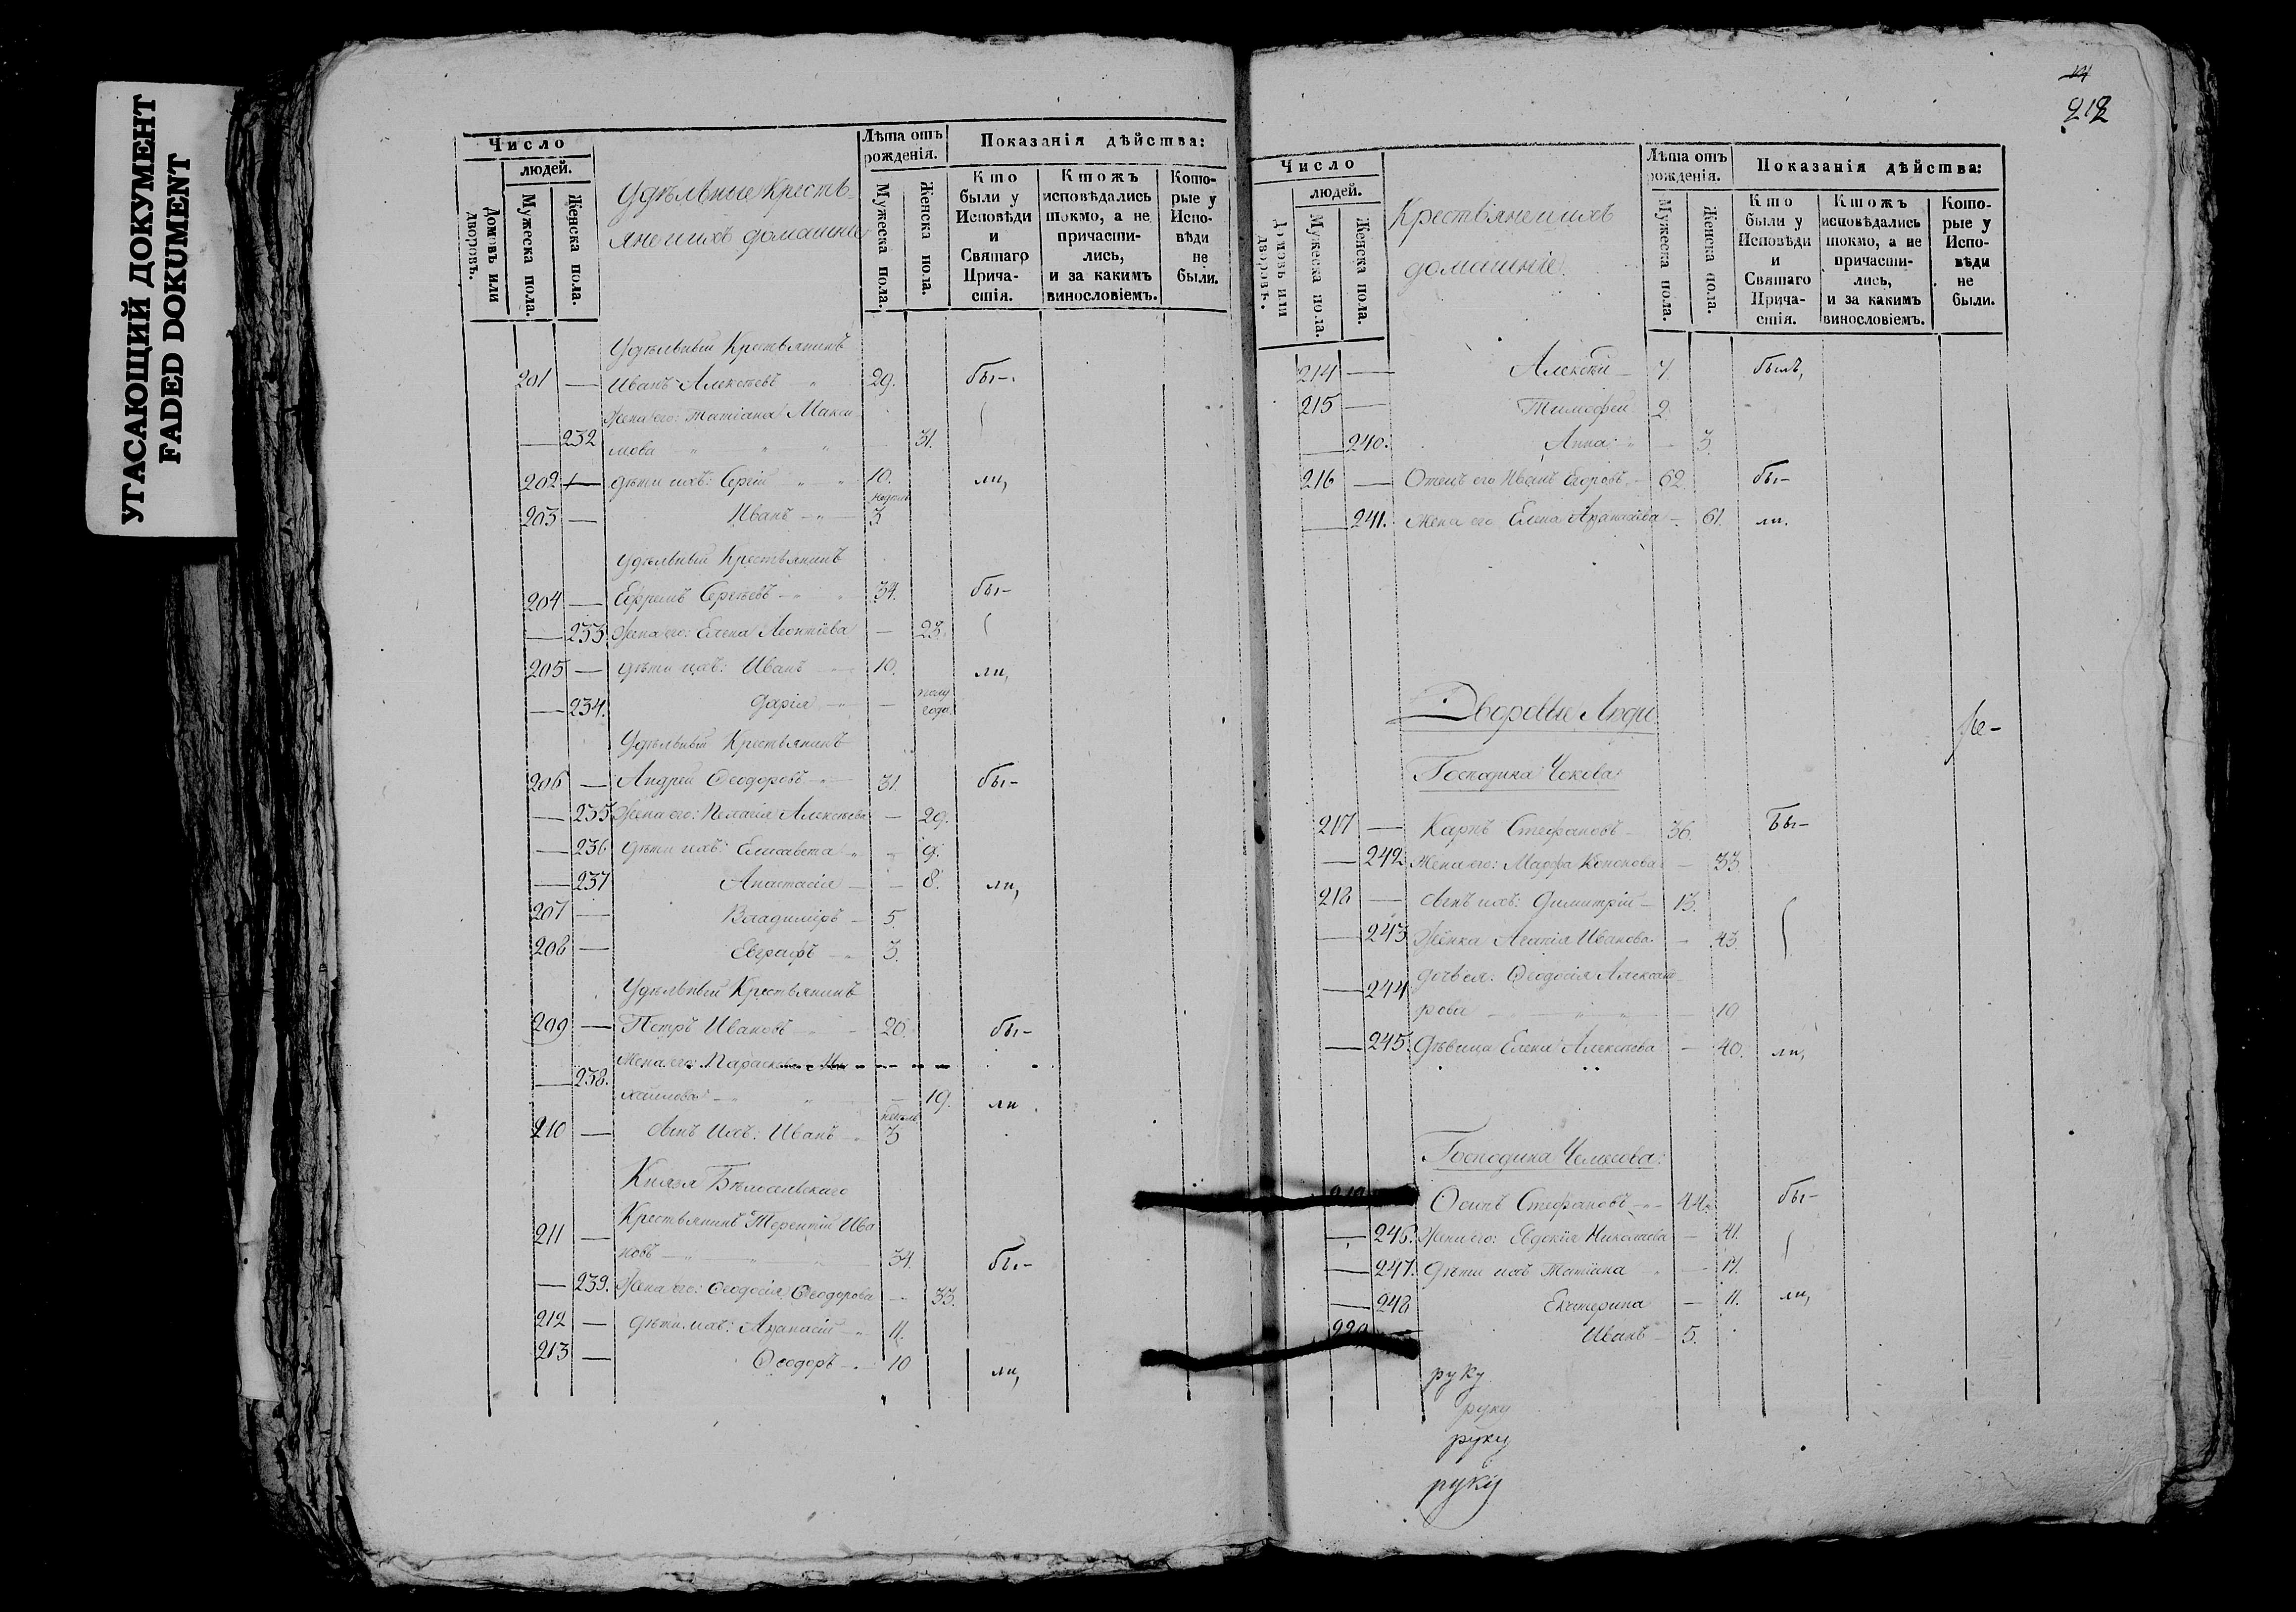 УГАСАЮЩИЙ ДОКУМЕНТ
FADED DOKUMENT
Число
людей.
Домовъ или дворовъ.
Мужеска пола.
Женска пола.
Удѣльные Кресть-
яне и ихъ домашніе
Лѣта отъ рожденія.
Мужеска пола.
Женска пола.
Показанія дѣйства:
Кто были у Исповѣди и Святаго Прича-стія.
Ктожъ исповѣдались токмо, а не причасти-лись, и за какимъ винословіемъ.
Кото-рые у Испо-вѣди не были.
Удѣльный Крестьянинъ
201 — Иванъ Алексѣевъ 29. бы-
Жена его: Татіана Макси
— 232 мова 31.
202 — дѣти ихъ: Сергій 10. ли,
203 — Иванъ 3
Удѣльный Крестьянинъ
204 — Ефремъ Сергѣевъ 34. бы-
— 233. Жена его: Елена Леонтіева — 28.
205 — дѣти ихъ: Иванъ 10. ли,
— 234. Дарія — полу года
Удѣльный Крестьянинъ
206 — Андрей Ѳеодоровъ 31. бы-
— 235 Жена его: Пелагія Алексѣева — 29.
— 236 дѣти ихъ: Елисавета 9.
— 237 Анастасія — 8. ли,
207 — Владиміръ 5.
208 — Евграфъ 3.
Удѣльный Крестьянинъ
209 — Петръ Ивановъ 20. бы-
Жена его: Параскева Ми
— 238. хайлова 19. ли
210 — Сынъ Ихъ: Иванъ недѣль 3
Князя Бѣлосельскаго
211 — Крестьянинъ Терентій Ива
новъ 34. бы-
— 239. Жена его: Ѳеодосія Ѳеодорова — 33.
212 — дѣти ихъ: Аѳанасій 11.
213 — Ѳеодоръ 10 ли,
212
Число
людей.
Домовъ или дворовъ.
Мужеска пола.
Женска пола.
Крестьяне и ихъ
домашніе.
Лѣта отъ рожденія.
Мужеска пола.
Женска пола.
Показанія дѣйства:
Кто были у Исповѣди и Святаго Прича-стія.
Ктожъ исповѣдались токмо, а не причасти-лись, и за какимъ винословіемъ.
Кото-рые у Испо-вѣди не были.
214 — Алексѣй 7. былъ,
215 — Тимофей 2.
— 240. Анна — 3.
216 — Отецъ его Иванъ Егоровъ 62. бы-
— 241. Жена его Елена Аѳанасіева — 61. ли.
Дворовые Люди
Господина Чокова
217 — Карпъ Стефановъ 36. Бы-
— 242. Жена его: Марѳа Кононова — 33.
218 — Сынъ ихъ: Димитрій 13.
— 243. Жёнка Агапія Иванова — 43.
дочь ея: Ѳеодосія Алексан
— 244 рова 19
— 245. Дѣвица Елена Алексѣева — 40. ли,
Господина Челюсова
Осипъ Стефановъ 44. бы-
— 246. Жена его: Евдокія Николаева — 41.
— 247. Дѣти ихъ Татіана — 17.
— 248 Екатерина — 11. ли,
220 — Иванъ 5.
руку
руку
руку
руку